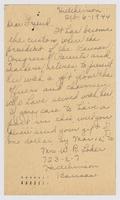 Hutchinson
Feb-6-1944
Dear Friend.
It has become
the custom when the
president of the Kansas
Congress of Parents and
Teachers, retires to present
her with a gift from the
officers and chairmen
who have served with her.
If you care to have a
part in this will you
please send your gift of
one dollar by Mar. 10 to
Mrs W. R. Baker
723-E-7
Hutchinson
Kansas